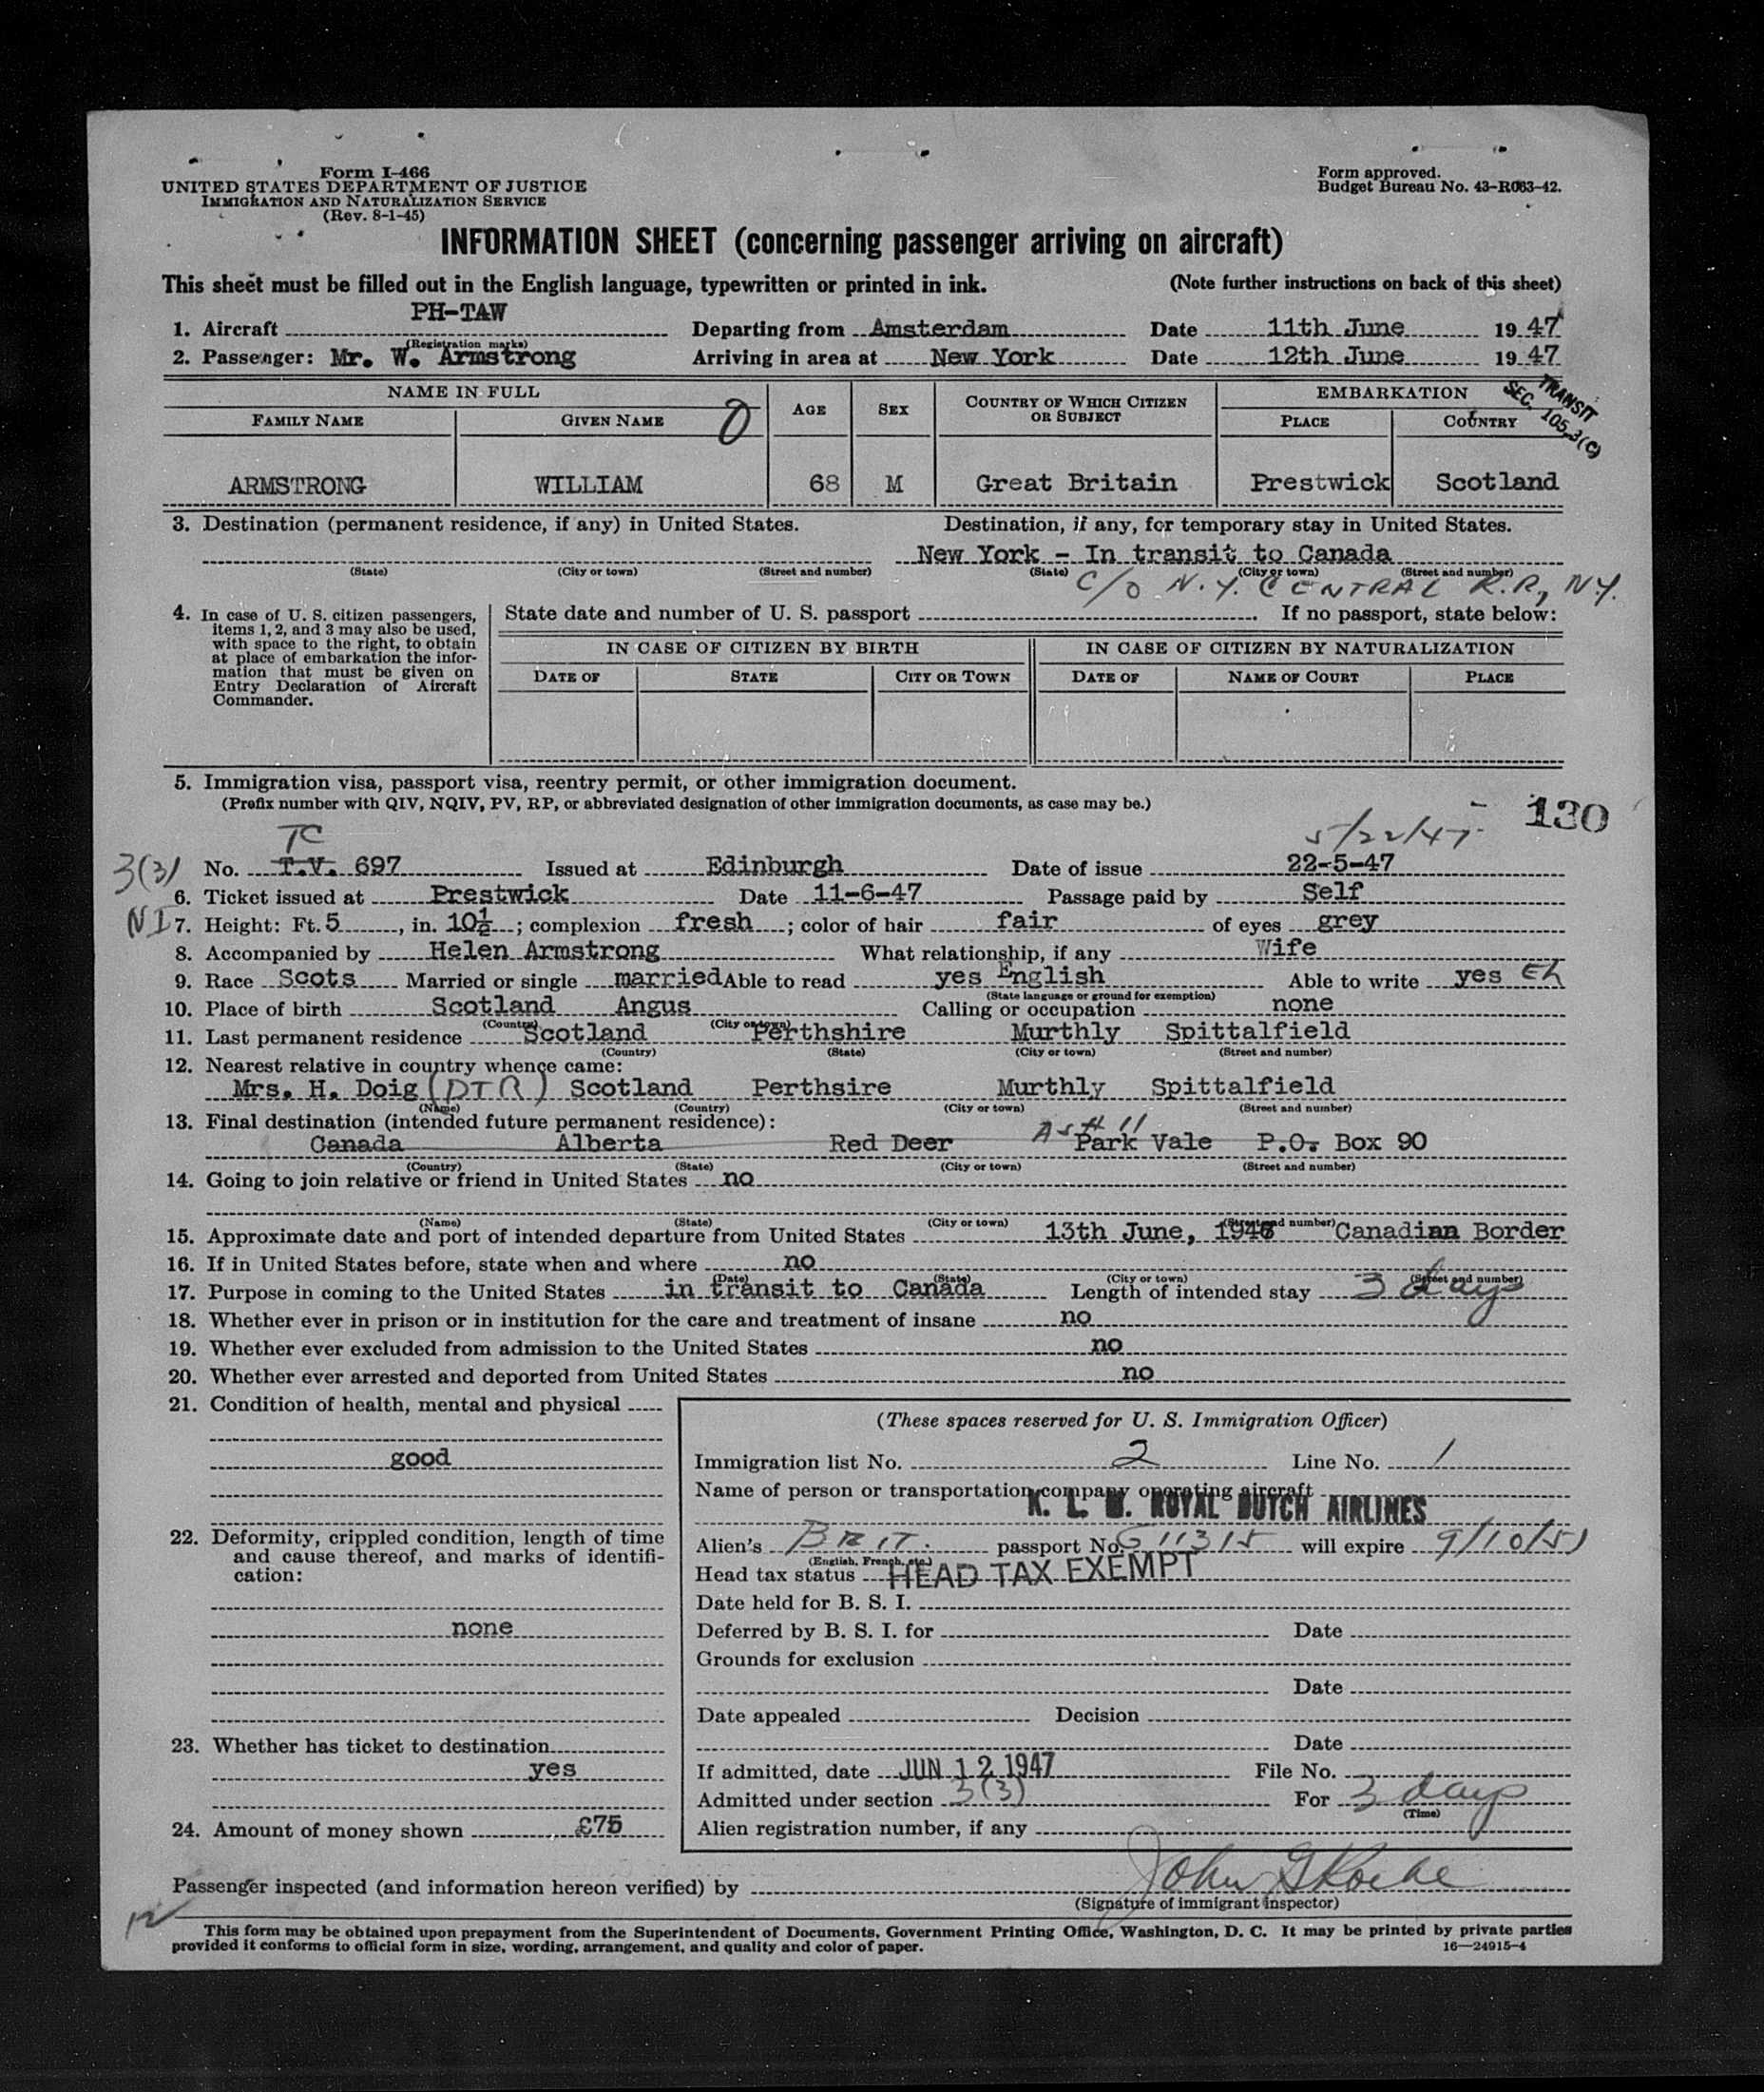 Form I-466
UNITED STATES DEPARTMENT OF JUSTICE
IMMIGRATION AND NATURALIZATION SERVICE
(Rev. 8-1-45)
Form approved.
Budget Bureau No. 43-R063-42.
INFORMATION SHEET (concerning passenger arriving on aircraft)
This sheet must be filled out in the English language, typewritten or printed in ink. (Note further instructions on back of this sheet)
1. Aircraft PH-TAW Departing from Amsterdam Date 11th June 1947
(Registration marks)
2. Passenger: Mr. W. Armstrong Arriving in area at New York Date 12th June 1947
TRANSIT
SEC. 105.3(C)
NAME IN FULL AGE SEX COUNTRY OF WHICH CITIZEN OR SUBJECT EMBARKATION
FAMILY NAME GIVEN NAME PLACE COUNTRY
ARMSTRONG WILLIAM 68 M Great Britain Prestwick Scotland
3. Destination (permanent residence, if any) in United States. Destination, if any, for temporary stay in United States.
New York - In transit to Canada
(State) (City or town) (Street and number) (State) (City or town) (Street and number)
C/O N.Y. CENTRAL R.R, N.Y.
4. In case of U. S. citizen passengers, items 1, 2, and 3 may also be used, with space to the right, to obtain at place of embarkation the information that must be given on Entry Declaration of Aircraft Commander.
State date and number of U. S. passport If no passport, state below:
IN CASE OF CITIZEN BY BIRTH IN CASE OF CITIZEN BY NATURALIZATION
DATE OF STATE CITY OR TOWN DATE OF NAME OF COURT PLACE
5. Immigration visa, passport visa, reentry permit, or other immigration document.
(Prefix number with QIV, NQIV, PV, RP, or abbreviated designation of other immigration documents, as case may be.)
130
TC 5/22/47
3(3) No. T.V. 697 Issued at Edinburgh Date of issue 22-5-47
6. Ticket issued at Prestwick Date 11-6-47 Passage paid by Self
NI 7. Height: Ft. 5, in. 10½; complexion fresh; color of hair fair of eyes grey
8. Accompanied by Helen Armstrong What relationship, if any Wife
9. Race Scots Married or single married Able to read yes English Able to write yes
(State language or ground for exemption)
10. Place of birth Scotland Angus Calling or occupation none
(Country) (City or town)
11. Last permanent residence Scotland Perthshire Murthly Spittalfield
(Country) (State) (City or town) (Street and number)
12. Nearest relative in country whence came:
Mrs. H. Doig (DTR) Scotland Perthsire Murthly Spittalfield
(Name) (Country) (City or town) (Street and number)
13. Final destination (intended future permanent residence):
Canada Alberta Red Deer Park Vale P.O. Box 90
(Country) (State) (City or town) (Street and number)
14. Going to join relative or friend in United States no
(Name) (State) (City or town) (Street and number)
15. Approximate date and port of intended departure from United States 13th June, 1947 Canadian Border
16. If in United States before, state when and where no
(Date) (State) (City or town) (Street and number)
17. Purpose in coming to the United States in transit to Canada Length of intended stay 3 days
18. Whether ever in prison or in institution for the care and treatment of insane no
19. Whether ever excluded from admission to the United States no
20. Whether ever arrested and deported from United States no
21. Condition of health, mental and physical
good
22. Deformity, crippled condition, length of time and cause thereof, and marks of identification:
none
23. Whether has ticket to destination
yes
24. Amount of money shown £75
(These spaces reserved for U. S. Immigration Officer)
Immigration list No. 2 Line No. 1
Name of person or transportation company operating aircraft
K. L. M. ROYAL DUTCH AIRLINES
Alien's BRIT. passport No. G11315 will expire 9/10/51
(English, French, etc.)
Head tax status HEAD TAX EXEMPT
Date held for B. S. I.
Deferred by B. S. I. for Date
Grounds for exclusion
Date
Date appealed Decision
Date
If admitted, date JUN 12 1947 File No.
Admitted under section 3(3) For 3 days
(Time)
Alien registration number, if any
Passenger inspected (and information hereon verified) by
(Signature of immigrant inspector)
This form may be obtained upon prepayment from the Superintendent of Documents, Government Printing Office, Washington, D. C. It may be printed by private parties
provided it conforms to official form in size, wording, arrangement, and quality and color of paper. 16—24915-4